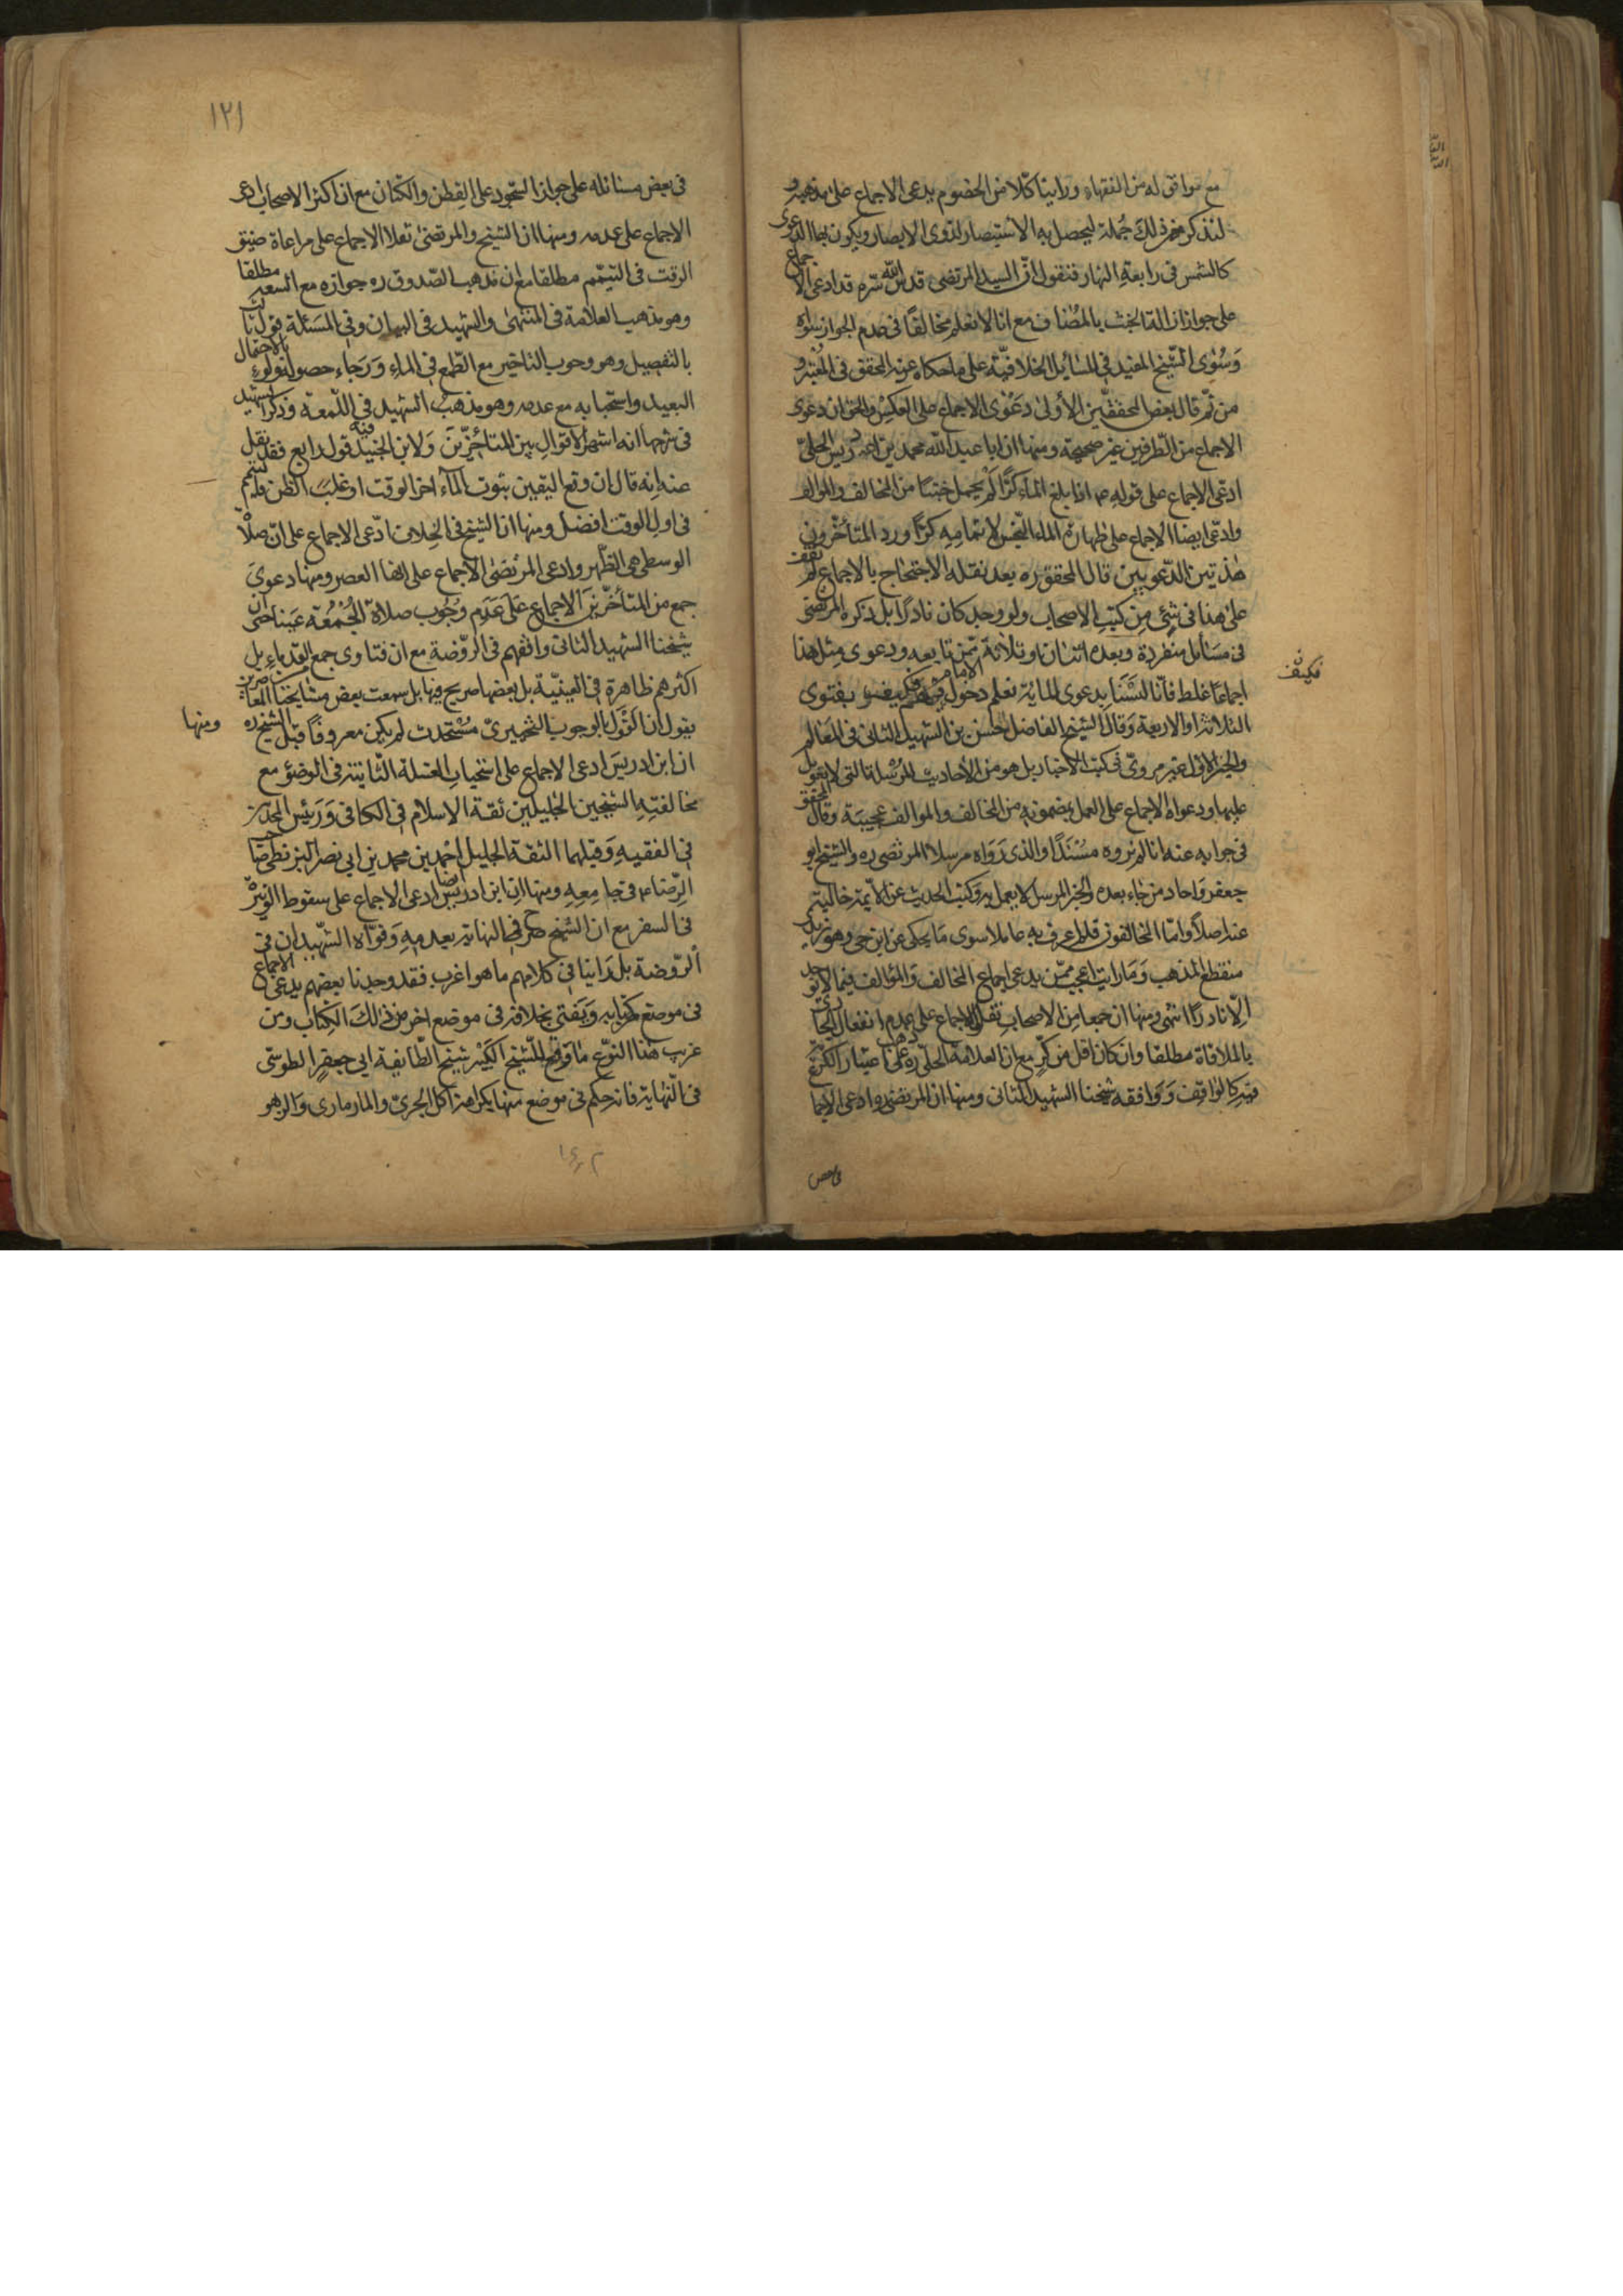 مع موافق له من الفقهاء ورأينا كلا من الخصوم يدعى الاجماع على مذهبه و
لنذكر من ذلك جملة ليحصل به الاستبصار لذوى الابصار ويكون بها الدعوى
كالشمس فى رابعة النهار فنقول ان السيد المرتضى قدس الله سره قد ادعى الاجماع
على جواز ازالة الخبث بالمضاف مع انا لا نعلم مخالفا فى عدم الجواز سواه
وسوى الشيخ المفيد فى المسائل الخلافية على ما حكاه عنه المحقق فى المعتبر و
من ثم قال بعض المحققين الأولى دعوى الاجماع على العكس والحق ان دعوى
الاجماع من الطرفين غير صحيحة ومنها ان ابا عبد الله محمد بن ادريس الحلى
ادعى الاجماع على قوله ع اذا بلغ الماء كرا لم يحمل خبثا من المخالف والموالف
وادعى ايضا الاجماع على طهارة الماء النجس لاتمامه كرا ورد المتأخرون
هذتين الدعويين قال المحقق ره بعد نقله الاحتجاج بالاجماع لم نقف
على هذا فى شئ من كتب الاصحاب ولو وجد كان نادرا بل ذكره المرتضى
فى مسائل منفردة وبعده اثنان او ثلاثة ممن تابعه ودعوى مثل هذا
اجماعا غلط فأنا لسنا بدعوى المائة نعلم دخول الامام فيهم فكيف بفتوى
فكيف
الثلاثة او الاربعة وقال الشيخ الفاضل حسن بن الشهيد الثانى فى المعالم
والخبر الاول غير مروى فى كتب الاخبار بل هو من الأحاديث المرسلة التى لا تعويل
عليها ودعواه الاجماع على العمل بمضمونه من المخالف والموالف عجيبة وقال المحقق
فى جوابه عنه انا لم نروه مسندا والذى رواه مرسلا المرتضى ره والشيخ ابو
جعفر واحاد من جاء بعده والخبر المرسل لا يعمل به وكتب الحديث عن الأئمة خالية
عنه اصلا وأما المخالفون فلم اعرف به عاملا سوى ما يحكى عن ابن حى وهو زيدى
منقطع المذهب وما رايت اعجب ممن يدعى اجماع المخالف والمؤالف فيما لا يوجد
الا نادرا انتهى ومنها ان جمعا من الاصحاب نقل الاجماع على عدم انفعال الجارى
بالملاقاة مطلقا وان كان اقل من كر مع ان العلامة الحلى ره ذهب على اعتبار الكرية
فيه كالواقف ووافقه شيخنا الشهيد الثانى ومنها ان المرتضى ره ادعى الاجماع
فى بعض
١٢١
فى بعض مسائله على جواز السجود على القطن والكتان مع ان اكثر الاصحاب ادعى
الاجماع على عدمه ومنها ان الشيخ والمرتضى نقلا الاجماع على مراعاة ضيق
الوقت فى التيمم مطلقا مع ان مذهب الصدوق ره جوازه مع السعة مطلقا
وهو مذهب العلامة فى المنتهى والشهيد فى البيان وفى المسئلة قول ثالث
بالتفصيل وهو وجوب التاخير مع الطمع فى الماء ورجاء حصوله ولو بالاحتمال
البعيد واستحبابه مع عدمه وهو مذهب الشهيد فى اللمعة وذكر الشهيد
فى شرحها انه اشهر الاقوال بين المتأخرين ولابن الجنيد فيه قول رابع فقد نقل
عنه انه قال ان وقع اليقين بثوت الماء اخر الوقت او غلب الظن فالتيمم
فى اول الوقت افضل ومنها ان الشيخ فى الخلاف ادعى الاجماع على ان صلاة
الوسطى هى الظهر وادعى المرتضى الاجماع على انها العصر ومنها دعوى
جمع من المتأخرين الاجماع على عدم وجوب صلاة الجمعة عينا حتى ان
شيخنا الشهيد الثانى وافقهم فى الروضة مع ان فتاوى جمع القدماء بل
اكثرهم ظاهرة فى العينية بل بعضها صريح فيها بل سمعت بعض مشايخنا المعاصرين
يقول ان القول بالوجوب التخييرى مستحدث لم يكن معروفا قبل الشيخ ره ومنها
ان ابن ادريس ادعى الاجماع على استحباب الغسلة الثانية فى الوضؤ مع
مخالفته الشيخين الجليلين ثقة الاسلام فى الكافى ورئيس المحدثين
فى الفقيه وقبلهما الثقة الجليل احمد بن محمد بن ابى نصر البزنطى صاحب
الرضا ع فى جامعه ومنها ان ابن ادريس ايضا ادعى الاجماع على سقوط الوتيرة
فى السفر مع ان الشيخ صرح فى النهاية بعدمه وقواه الشهيدان فى
الروضة بل رأينا فى كلامهم ما هو اغرب فقد وجدنا بعضهم يدعى الاجماع
فى موضع من كتابه ويفتى بخلافه فى موضع اخر من ذلك الكتاب ومن
غريب هذا النوع ما وقع للشيخ الكبير شيخ الطايفة ابى جعفر الطوسى
فى النهاية فانه حكم فى موضع منها بكراهة اكل الجرى والمار ماهى والزهو